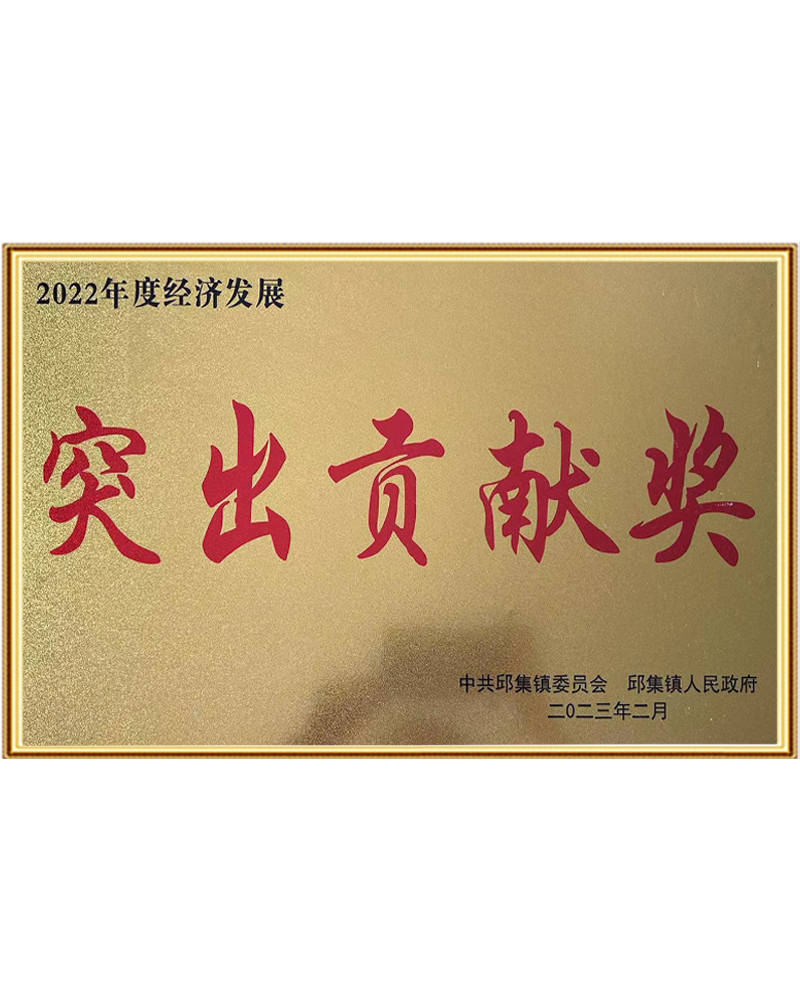 2022年度经济发展
突出贡献奖
中共邱集镇委员会 邱集镇人民政府
二0二三年二月